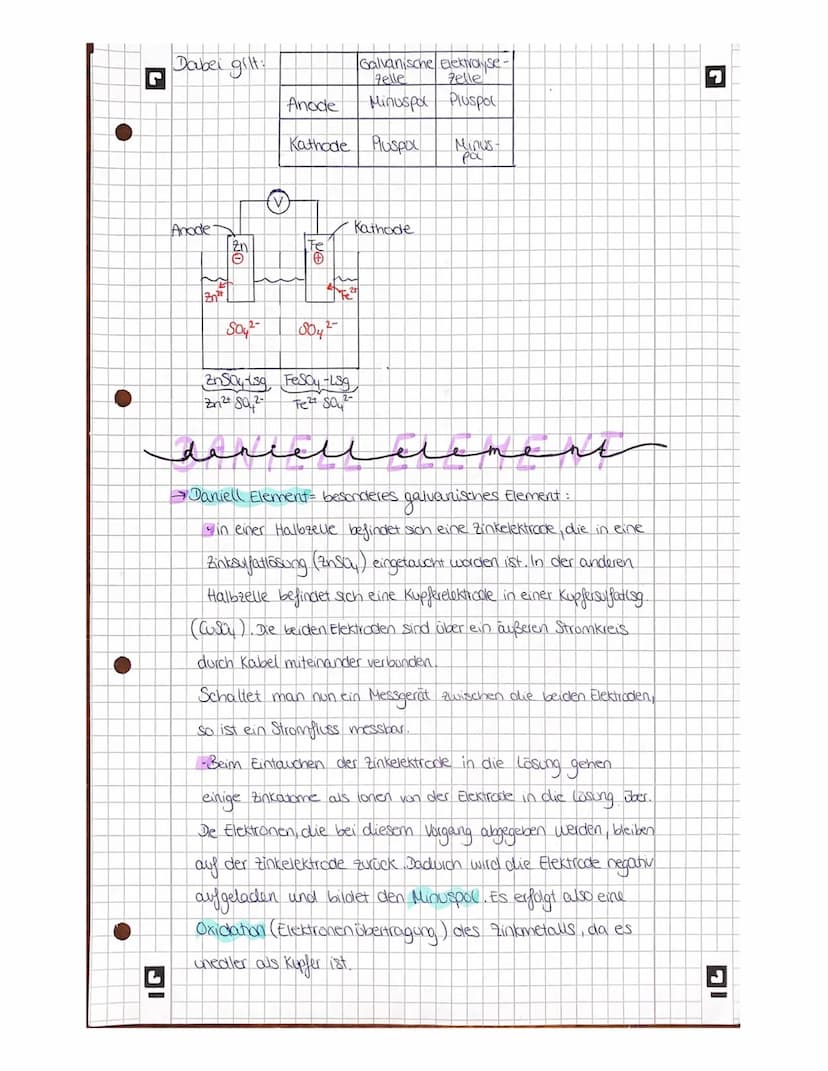 Dabei gilt:
Galvanische Zelle
Elektrolyse-Zelle
Anode Minuspol Pluspol
Kathode Pluspol Minus-pol
V
Anode
Kathode
Zn
Fe
⊖
⊕
Zn²⁺
Fe²⁺
SO₄²⁻
SO₄²⁻
ZnSO₄-Lsg
FeSO₄-Lsg
Zn²⁺ SO₄²⁻
Fe²⁺ SO₄²⁻
DANIELL ELEMENT
daniell element
→ Daniell Element = besonderes galvanisches Element:
in einer Halbzelle befindet sich eine Zinkelektrode, die in eine
Zinksulfatlösung (ZnSO₄) eingetaucht worden ist. In der anderen
Halbzelle befindet sich eine Kupferelektrode in einer Kupfersulfatlsg.
(CuSO₄). Die beiden Elektroden sind über ein äußeren Stromkreis
durch Kabel miteinander verbunden.
Schaltet man nun ein Messgerät zwischen die beiden Elektroden,
so ist ein Stromfluss messbar.
- Beim Eintauchen der Zinkelektrode in die Lösung gehen
einige Zinkatome als Ionen von der Elektrode in die Lösung über.
De Elektronen, die bei diesem Vorgang abgegeben werden, bleiben
auf der Zinkelektrode zurück. Dadurch wird die Elektrode negativ
aufgeladen und bildet den Minuspol. Es erfolgt also eine
Oxidation (Elektronenübertragung) des Zinkmetalls, da es
unedler als Kupfer ist.